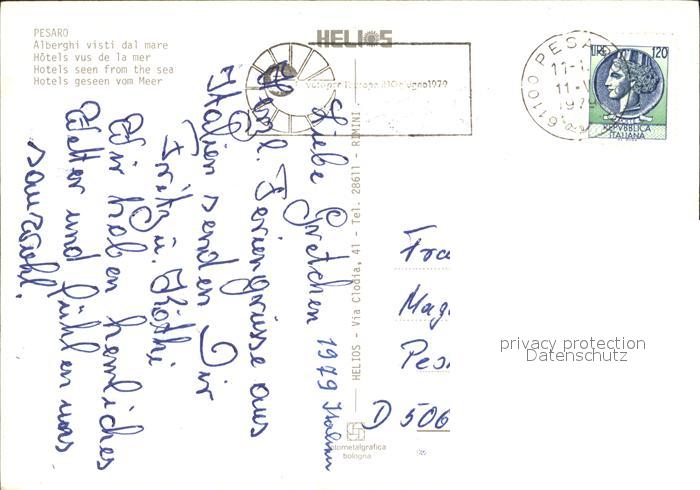 PESARO
Alberghi visti dal mare
Hôtels vus de la mer
Hotels seen from the sea
Hotels geseen vom Meer
HELIOS
10 giugno 1979
61100 PESA
11-
1979
LIRE 120
REPVBBLICA
ITALIANA
Liebe Gretchen 1979 Italien
Herzl. Feriengrüsse aus
Italien senden Dir
Fritz u. Käthi
Wir haben herrliches
Wetter und fühlen uns
sauwohl.
HELIOS - Via Clodia, 41 - Tel. 28611 - RIMINI
Fra
Mag
Pes
D 506
privacy protection
Datenschutz
fotometalgrafica
bologna